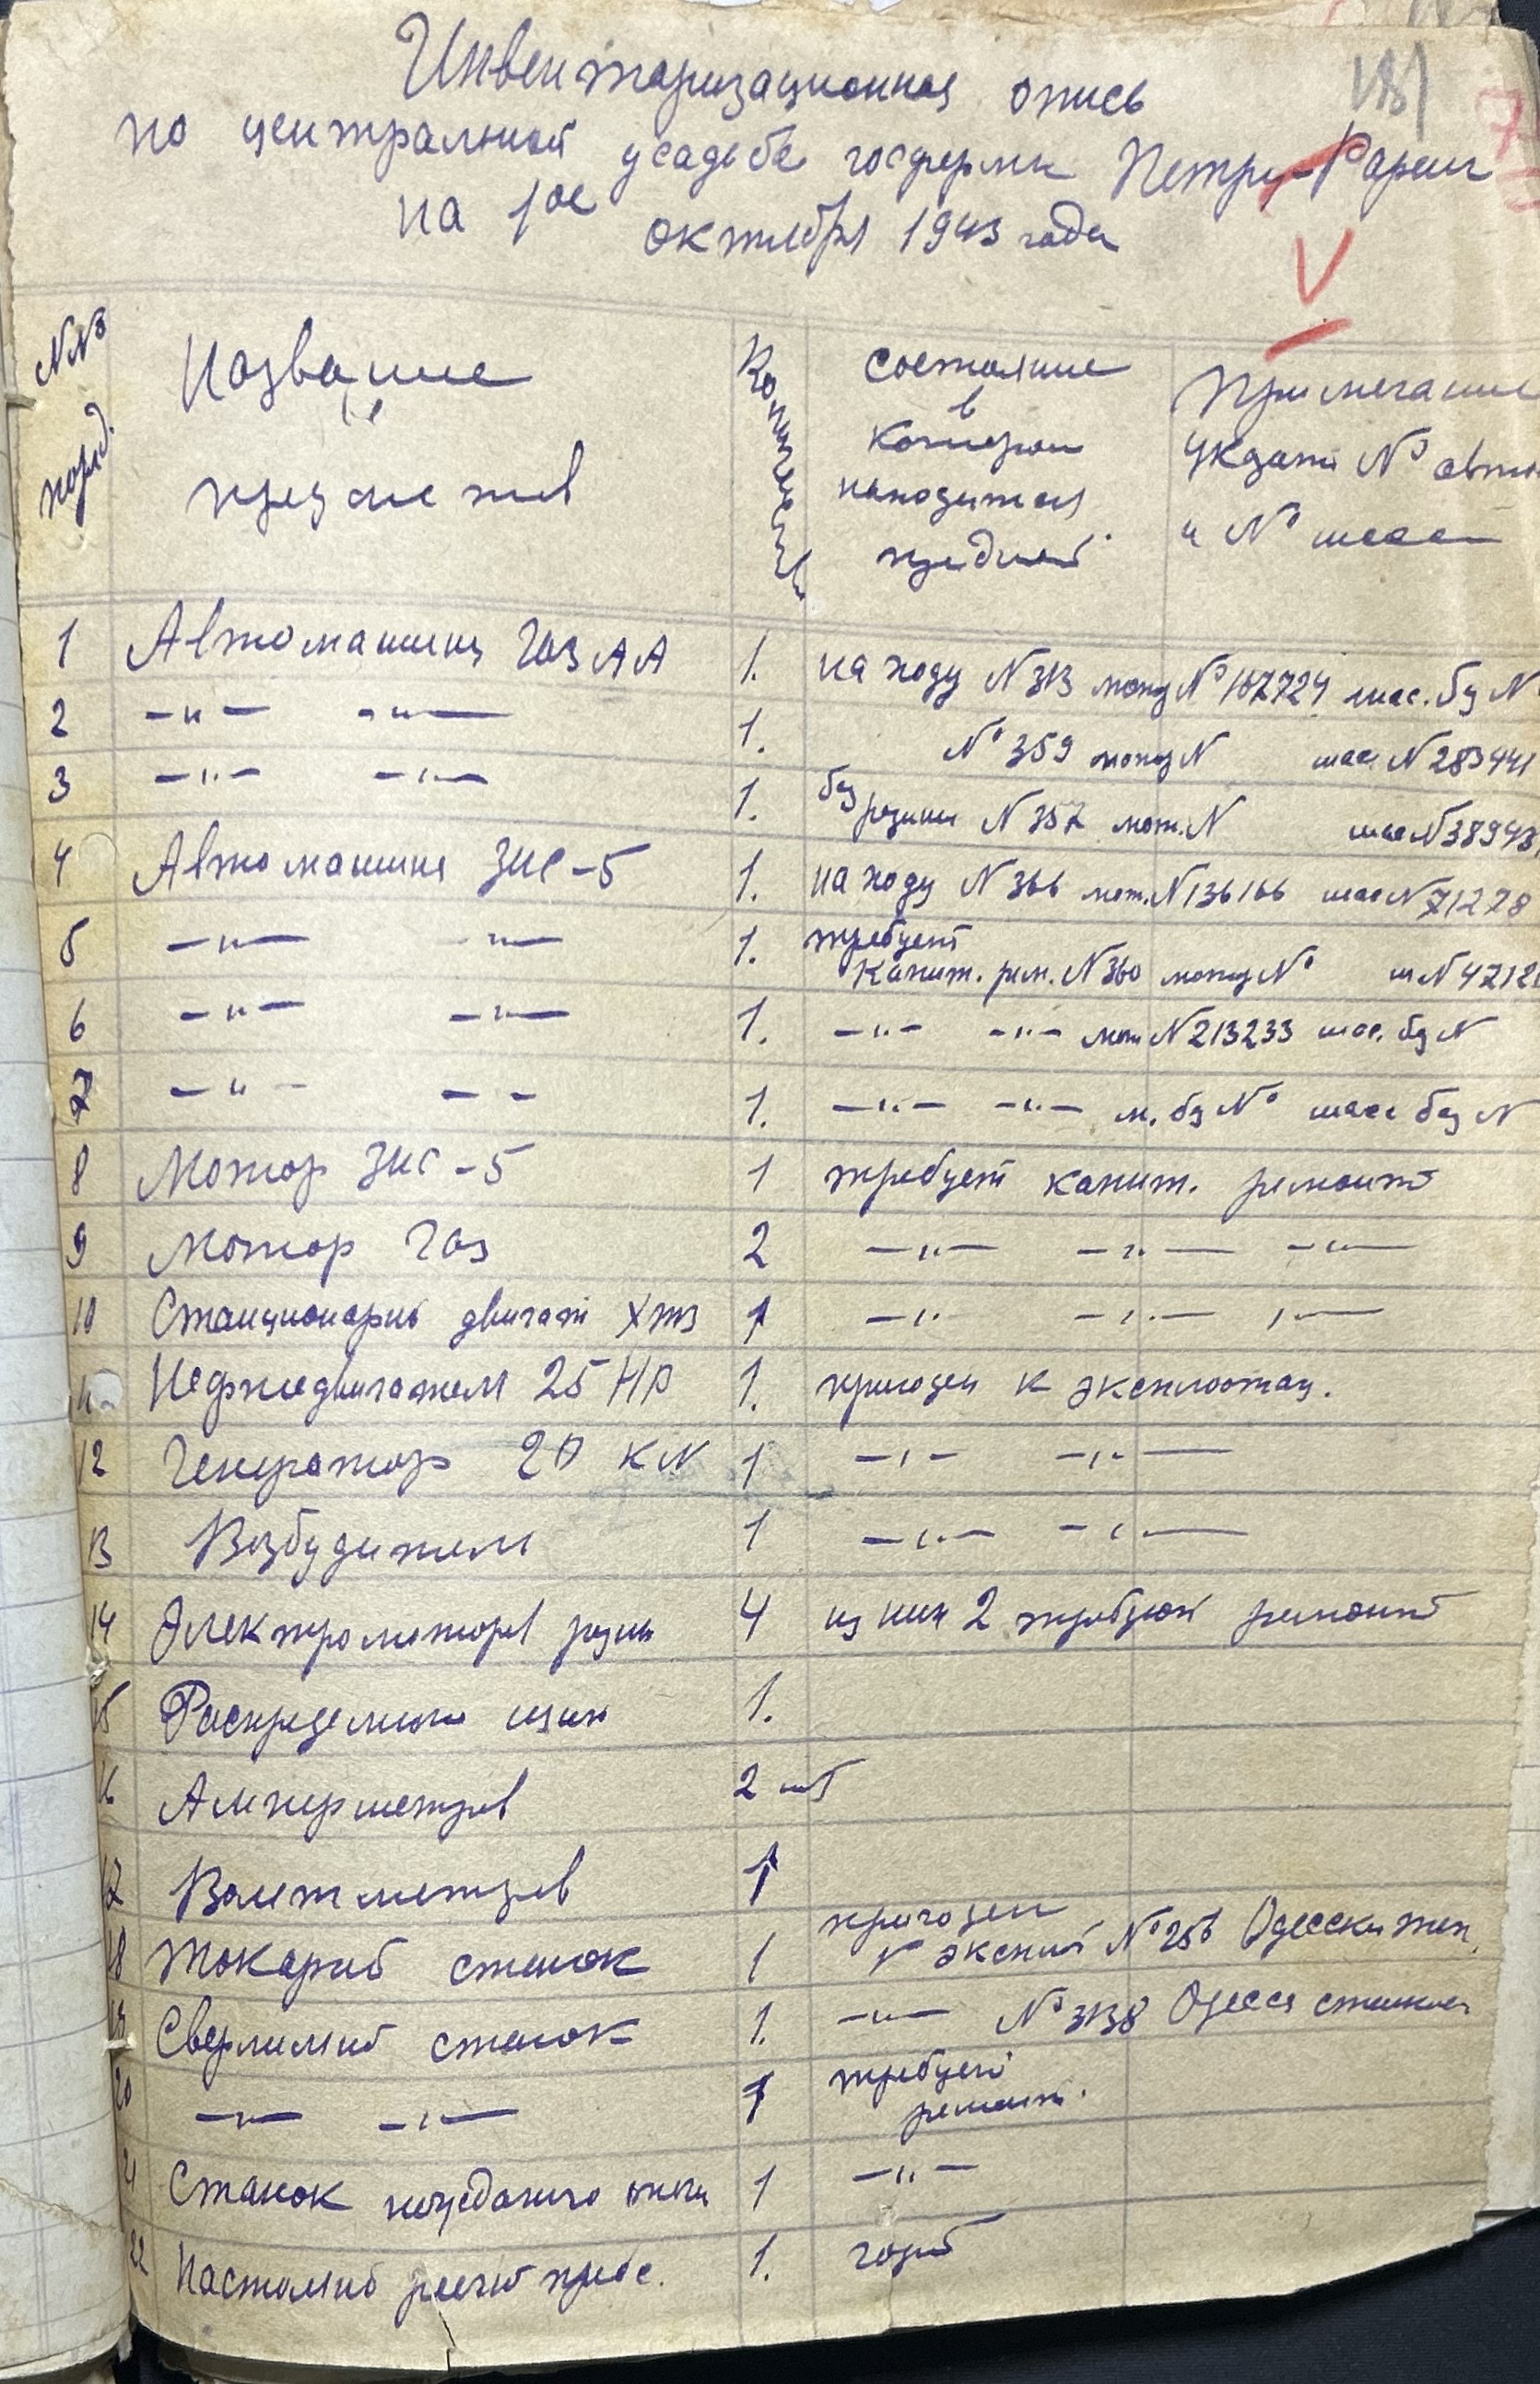 Инвентаризационная опись
по центральной усадьбе госфермы Петру-Рареш
на 1ое октября 1943 года
181
7
V
№№ поряд.
Название предметов
Количество
Состояние в котором находится предмет.
Примечание указать № авто и № шасси
1 Автомашина ГАЗ АА 1. на ходу N 313 мотор № 107724 шас. без N
2 -"- -"- 1. № 359 мотор N шас. N 283441
3 -"- -"- 1. без резины N 357 мот. N шас N 38943
4 Автомашина ЗИС-5 1. на ходу N 366 мот. N 136166 шас N 71278
5 -"- -"- 1. требует капит. рем. N 360 мотор № ш N 4712
6 -"- -"- 1. -"- -"- мот N 213233 шас. без N
7 -"- - - 1. -"- -"- м. без № шасс без N
8 Мотор ЗИС-5 1 требует капит. ремонт
9 Мотор Газ 2 -"- -"- -"-
10 Стационарный двигат ХТЗ 1 -"- -"- -"-
11 Нефтедвигатель 25 HP 1. пригоден к эксплоатац.
12 Генератор 20 KN 1 -"- -"-
13 Возбудитель 1 -"- -"-
14 Электромоторов разн 4 из них 2 требуют ремонт
15 Распределит щит 1.
16 Амперметров 2 шт
17 Вольтметров 1
18 Токарный станок 1 пригоден к эксплоат № 256 Одесски
19 Сверлильный станок 1. -"- № 3138 Одесса
20 -"- -"- 1 требует ремонт.
21 Станок 1 -"-
22 Настольный пресс. 1.